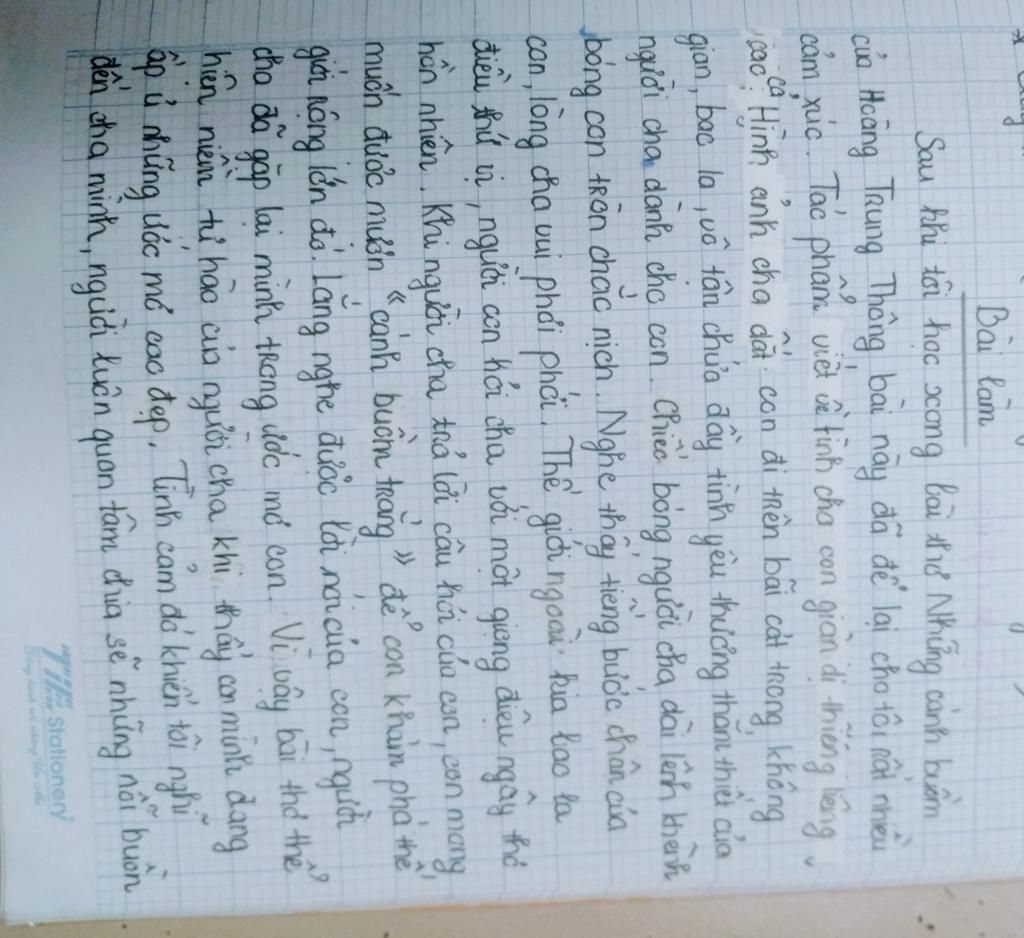 Bài làm
Sau khi tôi học xong bài thơ Những cánh buồm
của Hoàng Trung Thông bài này đã để lại cho tôi rất nhiều
cảm xúc. Tác phẩm viết về tình cha con giản dị thiêng liêng
cao cả. Hình ảnh cha dắt con đi trên bãi cát trong không
gian, bao la, vô tận chứa đầy tình yêu thương thắm thiết của
người cha dành cho con. Chiếc bóng người cha dài lênh khênh
bóng con tròn chắc nịch. Nghe thấy tiếng bước chân của
con, lòng cha vui phơi phới. Thế giới ngoài kia bao la
điều thú vị, người con hỏi cha với một giọng điệu ngây thơ
hồn nhiên. Khi người cha trả lời câu hỏi của con, con mong
muốn được mượn "cánh buồm trắng" để con khám phá thế
giới rộng lớn đó. Lắng nghe được lời nói của con, người
cha đã gặp lại mình trong ước mơ con. Vì vậy bài thơ thể
hiện niềm tự hào của người cha khi thấy con mình đang
ấp ủ những ước mơ cao đẹp. Tình cảm đó khiến tôi nghĩ
đến cha mình, người luôn quan tâm chia sẽ những nỗi buồn
TIE Stationery